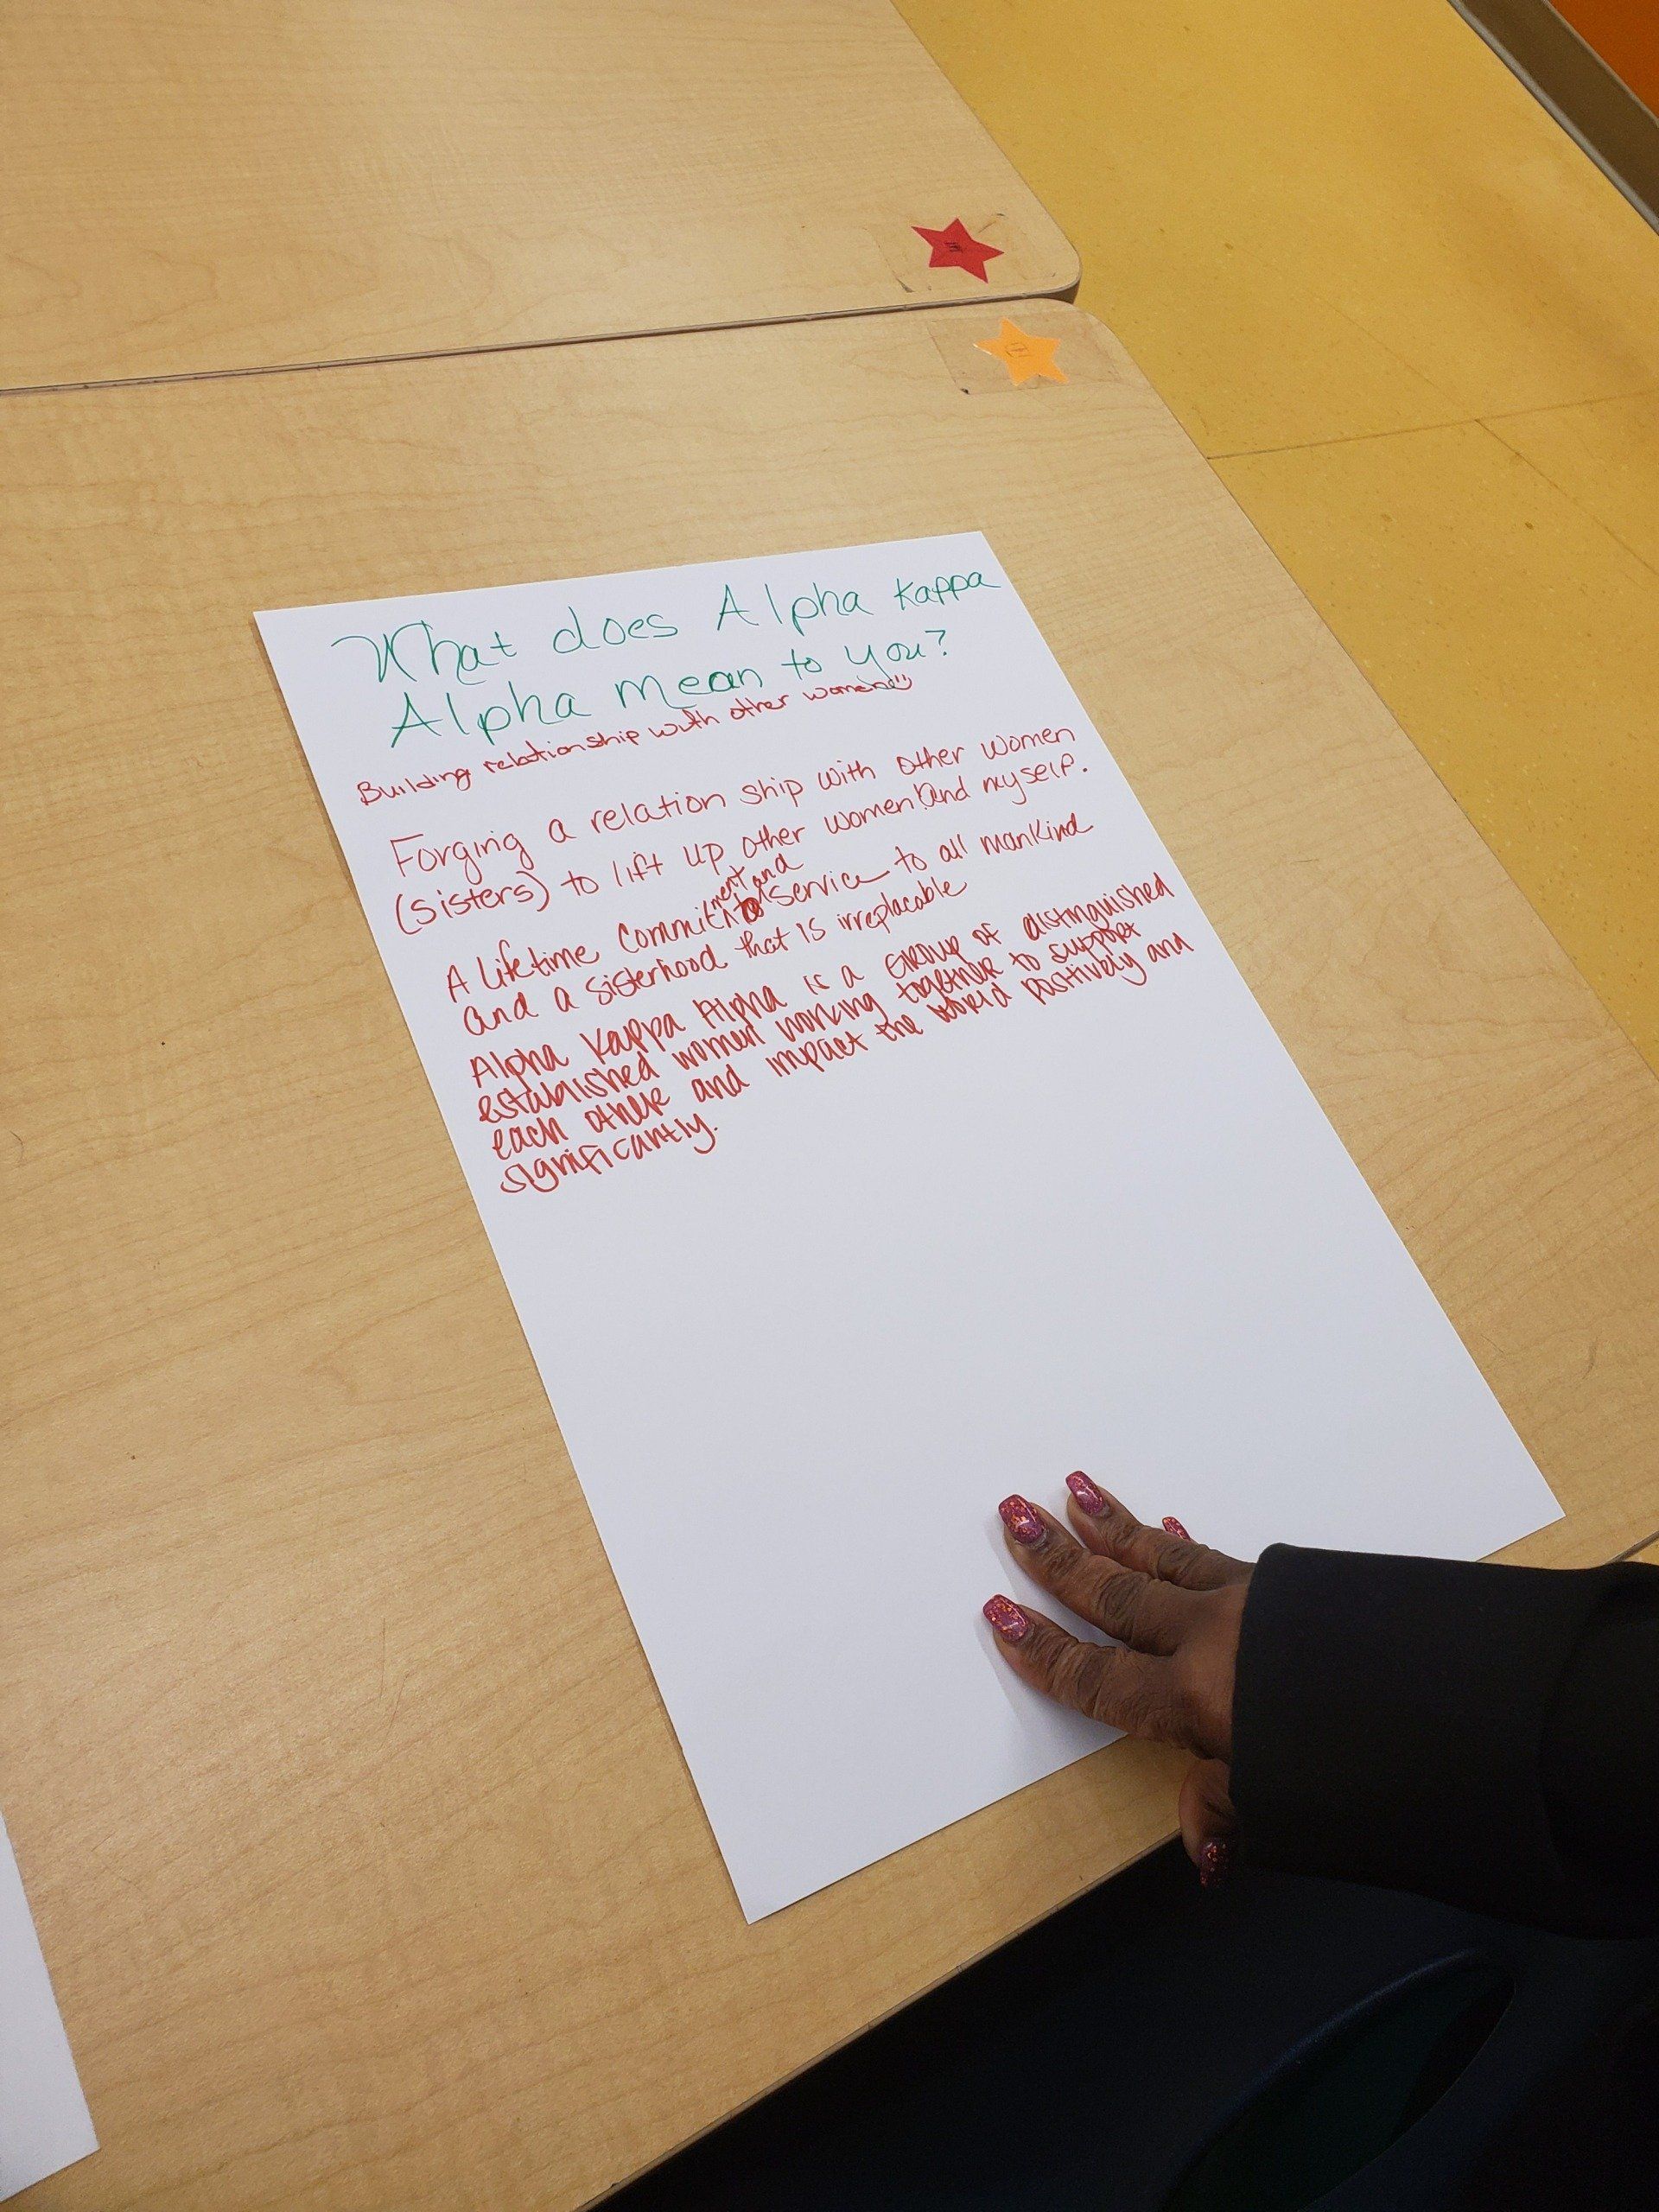 What does Alpha Kappa
Alpha mean to you?
Building relationship with other women
Forging a relation ship with other women
(sisters) to lift up other women! and myself.
A lifetime commitment and service to all mankind
and a sisterhood that is irreplacable
Alpha Kappa Alpha is a group of distinguished
established women working together to support
each other and impact the world positively and
significantly.